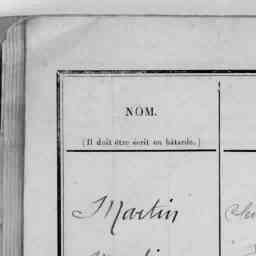 NOM.
(Il doit être écrit en bâtarde.)
Martin